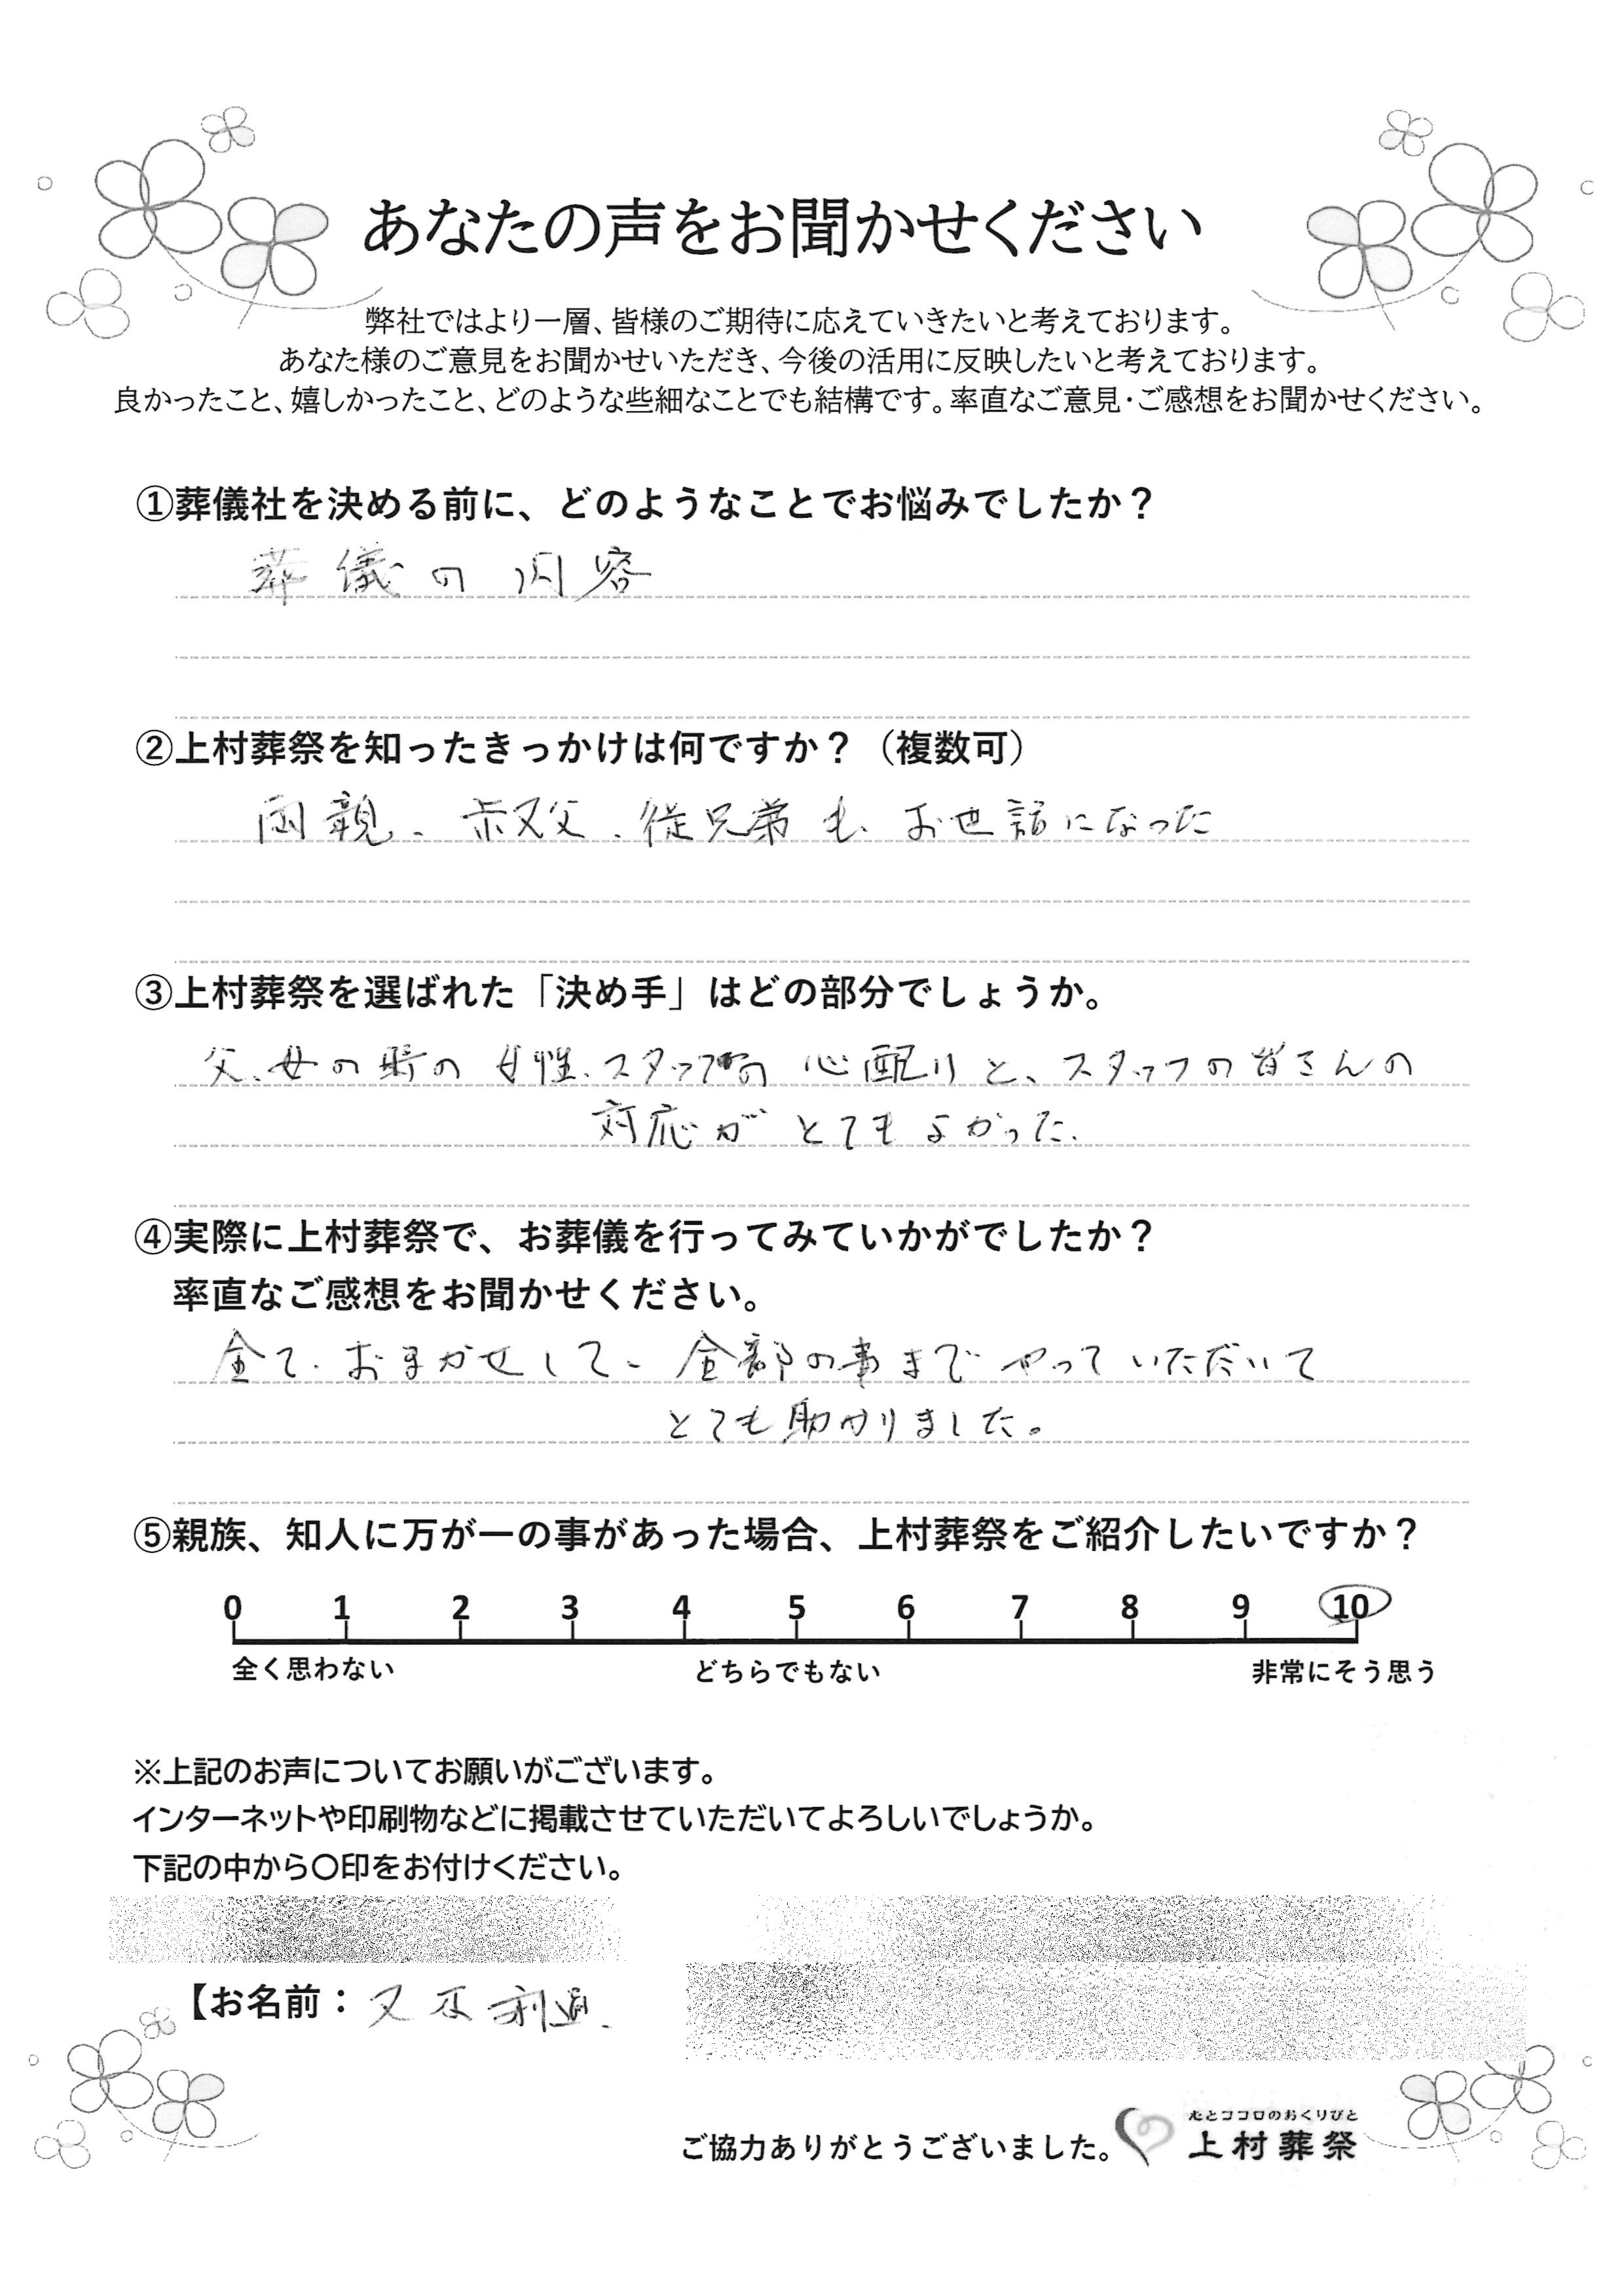 あなたの声をお聞かせください
弊社ではより一層、皆様のご期待に応えていきたいと考えております。
あなた様のご意見をお聞かせいただき、今後の活用に反映したいと考えております。
良かったこと、嬉しかったこと、どのような些細なことでも結構です。率直なご意見・ご感想をお聞かせください。
①葬儀社を決める前に、どのようなことでお悩みでしたか？
葬儀の内容
②上村葬祭を知ったきっかけは何ですか？（複数可）
両親、叔父、従兄弟も、お世話になった
③上村葬祭を選ばれた「決め手」はどの部分でしょうか。
父、母の時の女性、スタッフの心配りと、スタッフの皆さんの
対応がとてもよかった、
④実際に上村葬祭で、お葬儀を行ってみていかがでしたか？
率直なご感想をお聞かせください。
全て、おまかせして、全部の事までやっていただいて
とても助かりました。
⑤親族、知人に万が一の事があった場合、上村葬祭をご紹介したいですか？
0 1 2 3 4 5 6 7 8 9 10
全く思わない どちらでもない 非常にそう思う
※上記のお声についてお願いがございます。
インターネットや印刷物などに掲載させていただいてよろしいでしょうか。
下記の中から〇印をお付けください。
【お名前：
ご協力ありがとうございました。
心とココロのおくりびと
上村葬祭